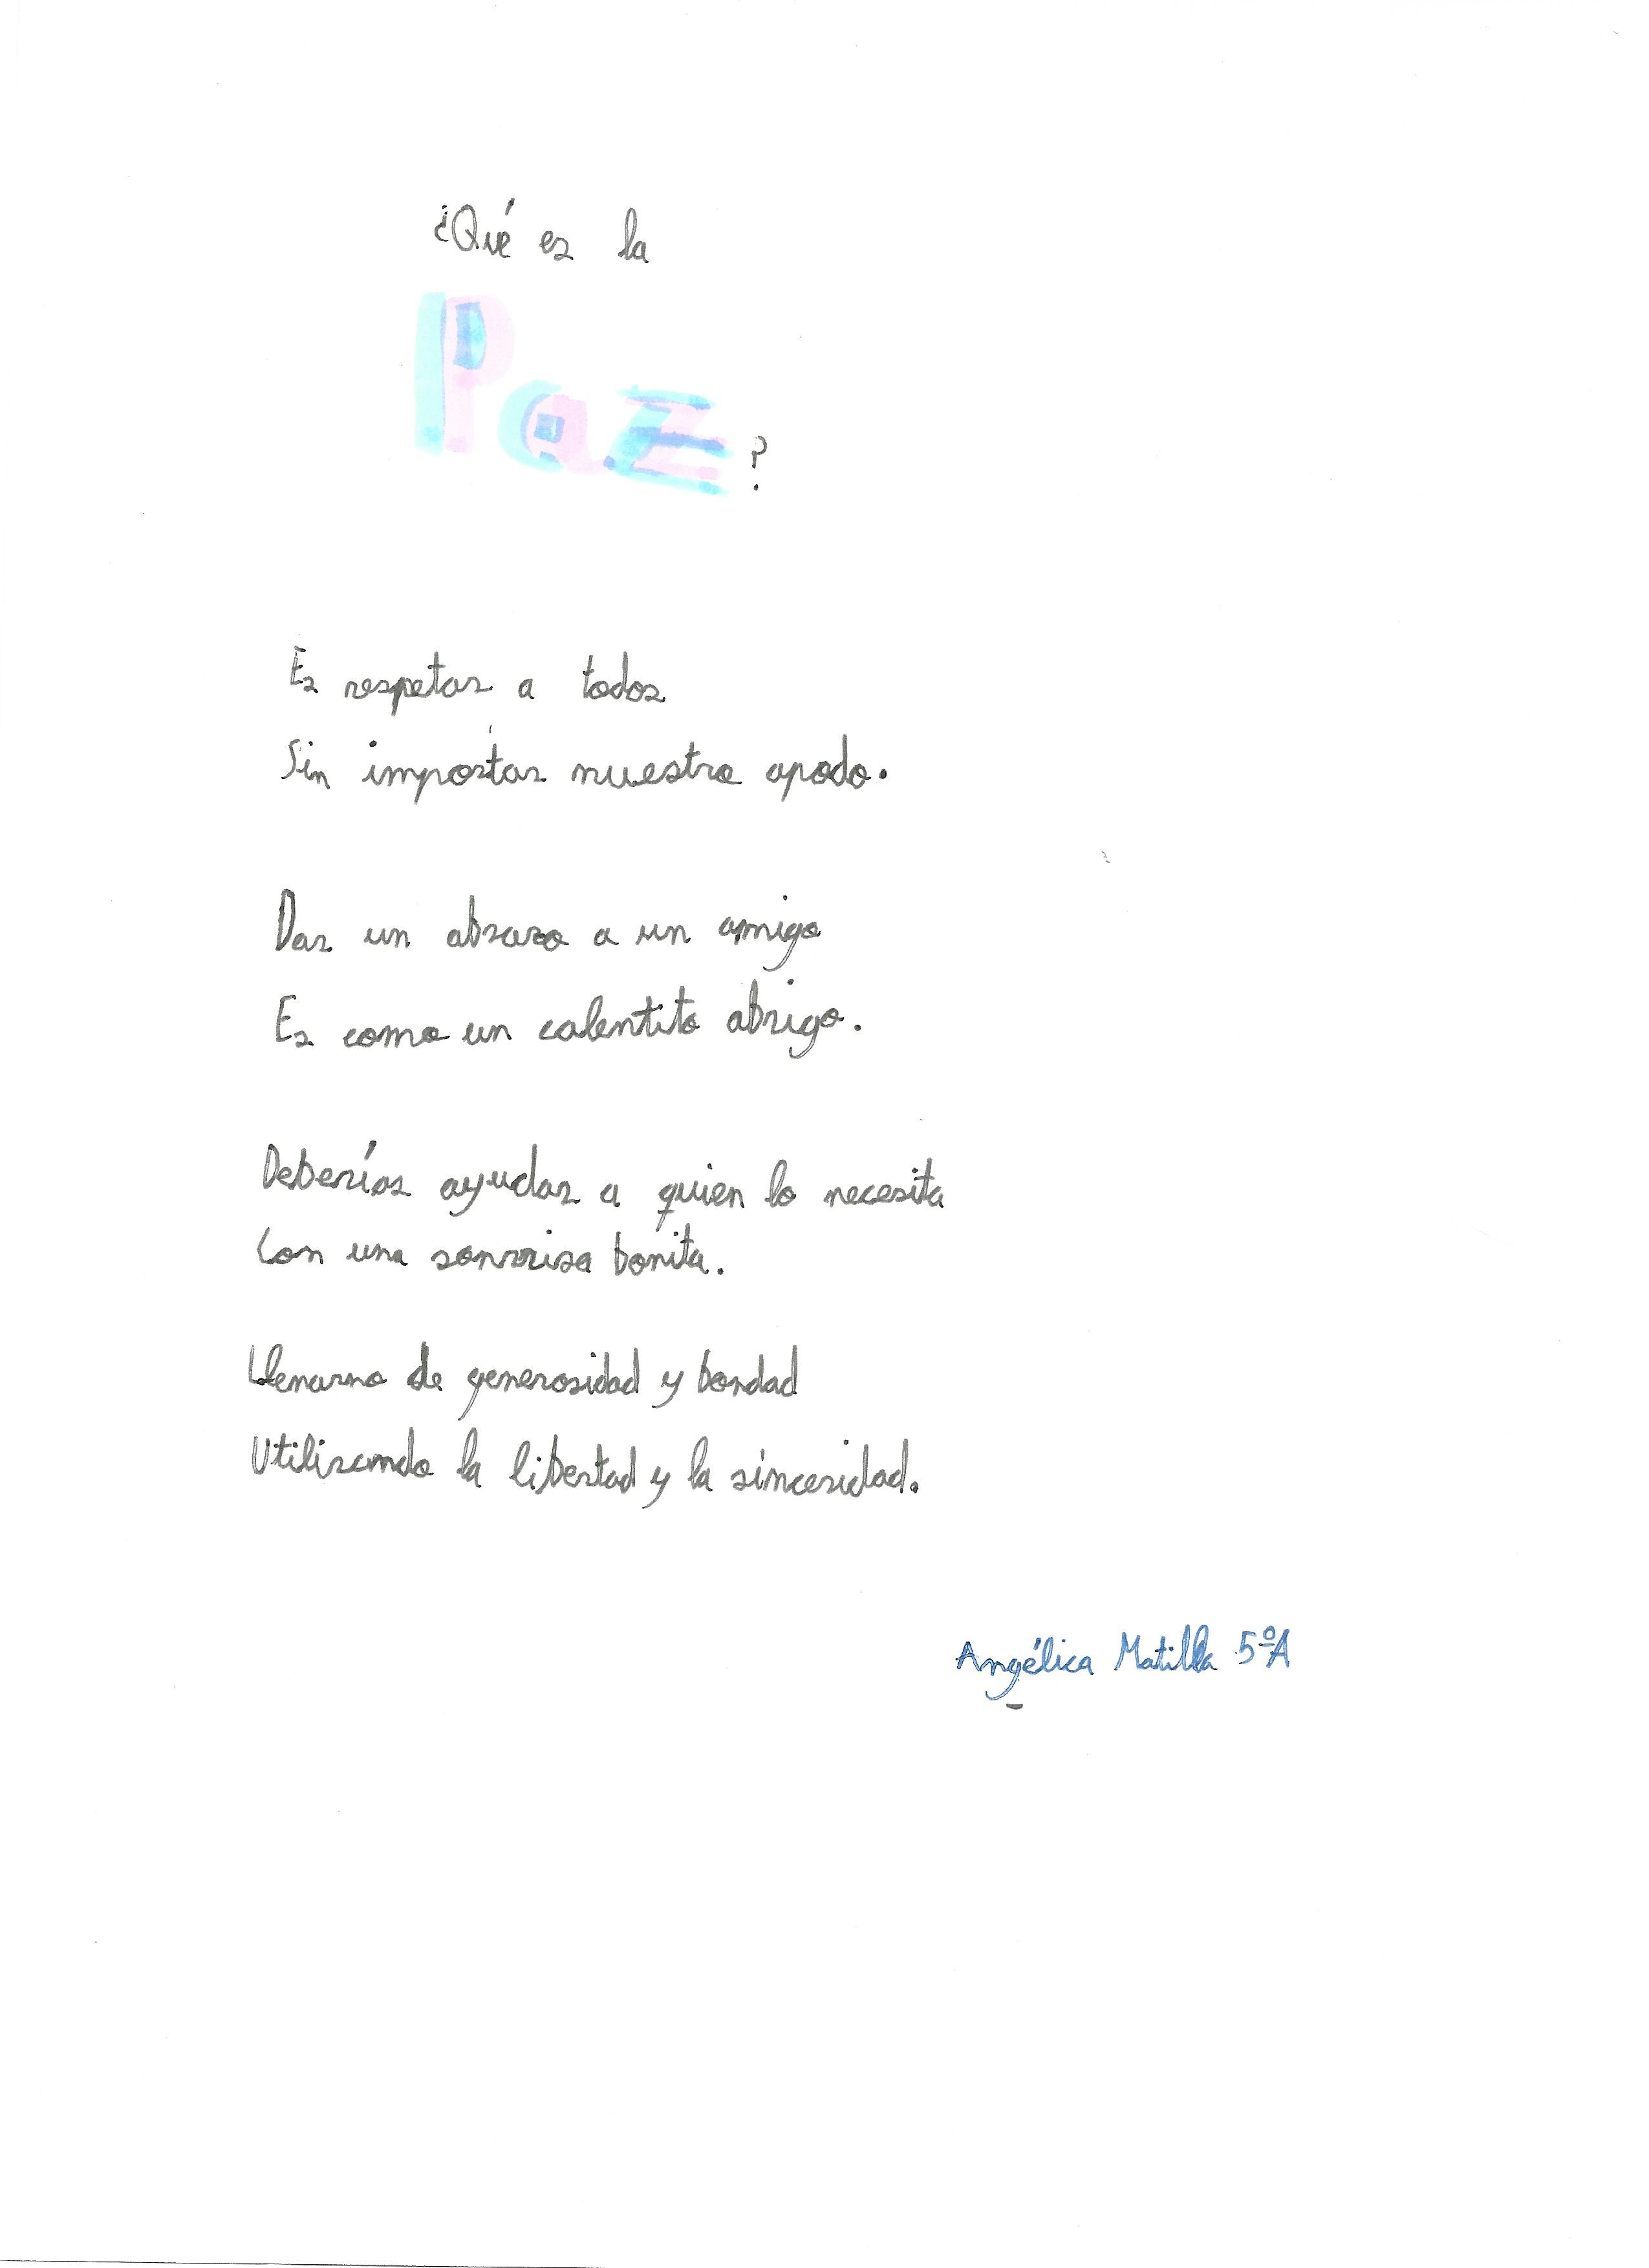 ¿Qué es la
Paz?
Es respetar a todos
Sin importar nuestro apodo.
Dar un abrazo a un amigo
Es como un calentito abrigo.
Deberías ayudar a quien lo necesita
Con una sonrrisa bonita.
Llenarno de generosidad y bondad
Utilizando la libertad y la sinceridad.
Angélica Matilla 5ºA